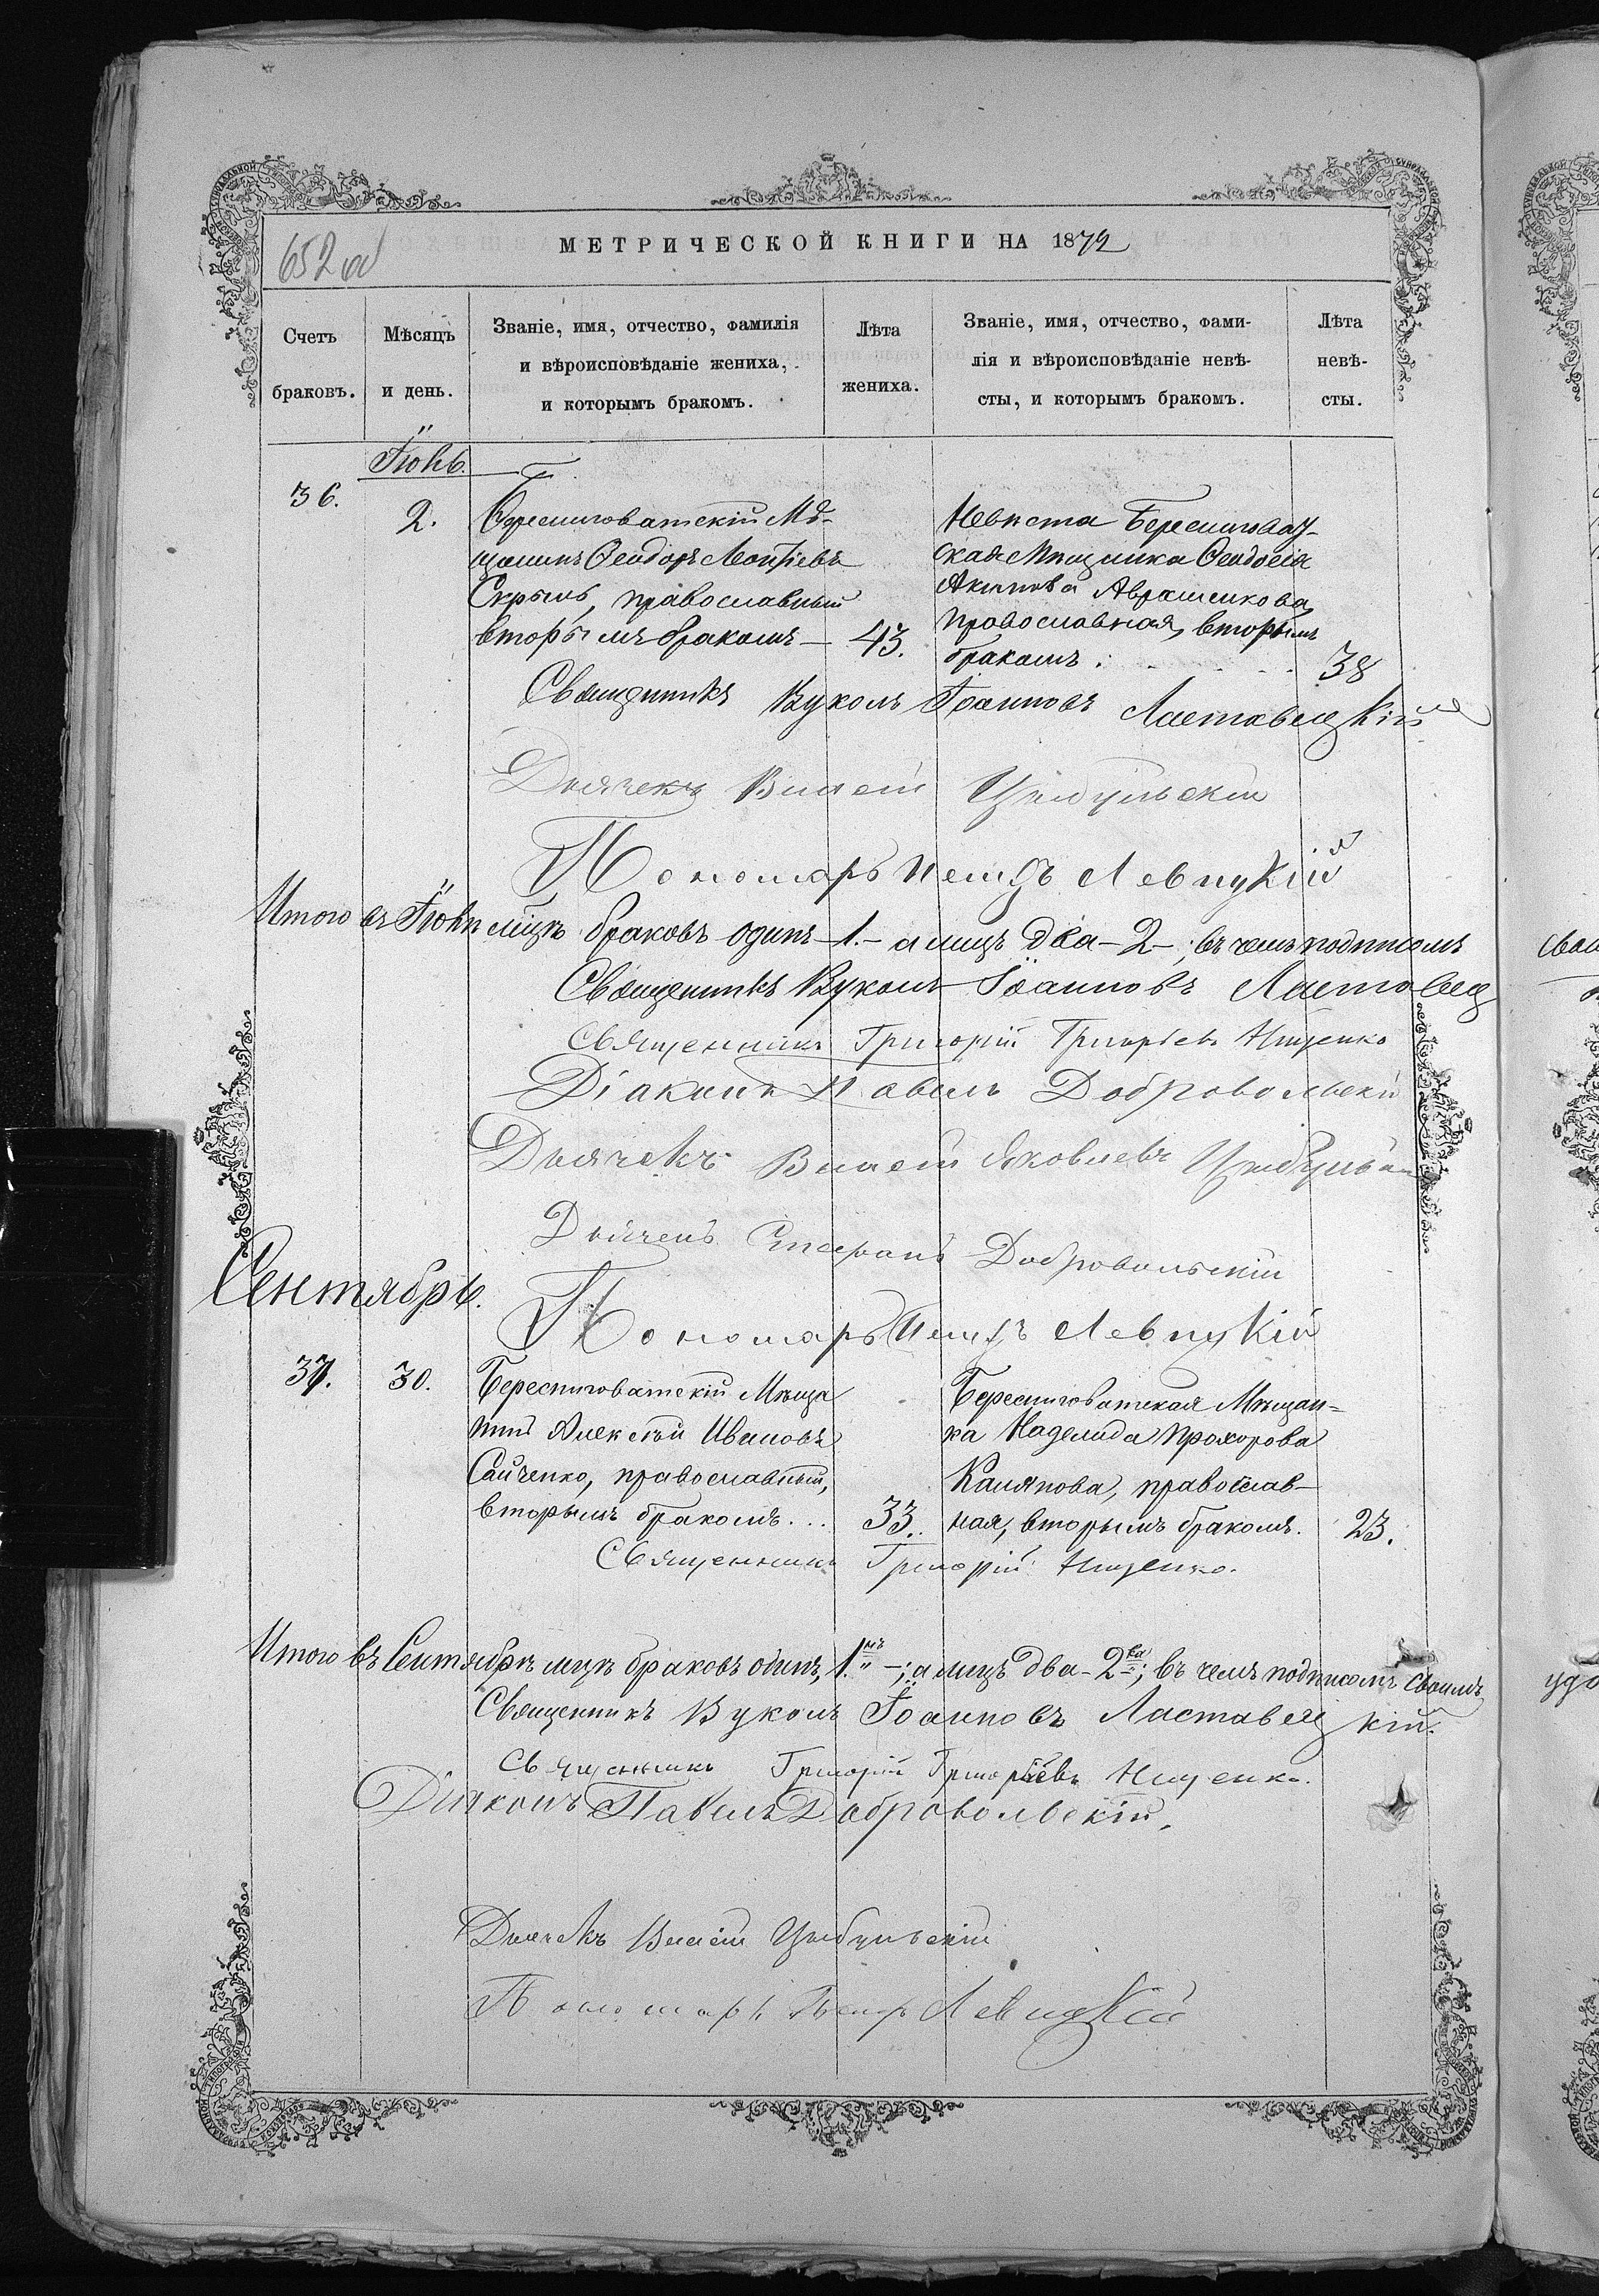 652 об
МЕТРИЧЕСКОЙ КНИГИ НА 1872
Счетъ браковъ.
Мѣсяцъ и день.
Званіе, имя, отчество, фамилія
и вѣроисповѣданіе жениха,
и которымъ бракомъ.
Лѣта жениха.
Званіе, имя, отчество, фами-
лія и вѣроисповѣданіе невѣ-
сты, и которымъ бракомъ.
Лѣта невѣ-
сты.
Іюнь.
36.
2.
Береснеговатскій Мѣ-
щанинъ Ѳеодоръ
православный
вторымъ бракомъ —
43.
Невѣста Береснеговат-
ская Мѣщанка Ѳеодосія
Акимова Аврашенкова
православная, вторымъ
бракомъ.
38
Священникъ Вуколъ Іоанновъ Ластавецкій
Дьячекъ Цымбульскій
Пономарь Левицкій
Итого въ Іюнѣ мцѣ браковъ одинъ —1.— а лицъ два —2—; въ чемъ подписомъ
Священникъ Вуколъ Іоанновъ Ластавец
Священникъ Григорій Григорьевъ Нищенко
Діаконъ Павелъ Добровольскій
Дьячекъ Яковлевъ Цымбульскій
Дьячекъ Добровольскій
Сентябрь.
Пономарь Левицкій
37.
30.
Береснеговатскій Мѣща
нинъ Алексѣй Ивановъ
Сайченко, православный,
вторымъ бракомъ...
33.
Береснеговатская Мѣщан=
ка Надежда Прохорова
православ-
ная, вторымъ бракомъ.
23.
Священникъ Григорій Нищенко.
Итого въ Сентябрѣ мцѣ браковъ одинъ, 1.нъ —; а лицъ два - 2ва; въ чемъ подписомъ своимъ
Священникъ Вуколъ Іоанновъ Ластавецкій.
Священникъ Григорій Григорьевъ Нищенко.
Діаконъ Павелъ Добровольскій.
Дьячекъ Цымбульскій
Пономарь Левицкій